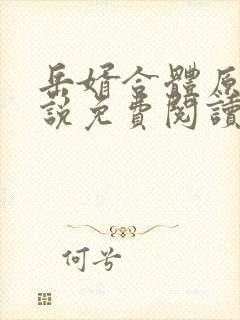 岳婿合體原
說免費閱讀
何兮